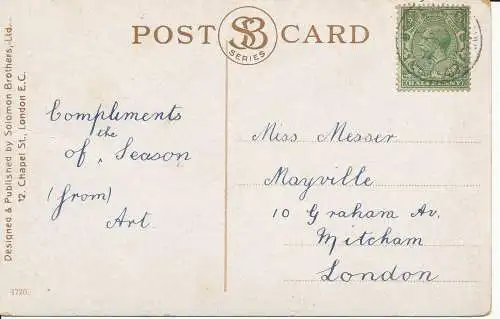 POST CARD
SB
SERIES
HALFPENNY
Designed & Published by Solomon Brothers, Ltd.
12, Chapel St., London E.C.
Compliments
of the Season
(from)
Art.
Miss Messer
Mayville
10 Graham Av.
Mitcham
London